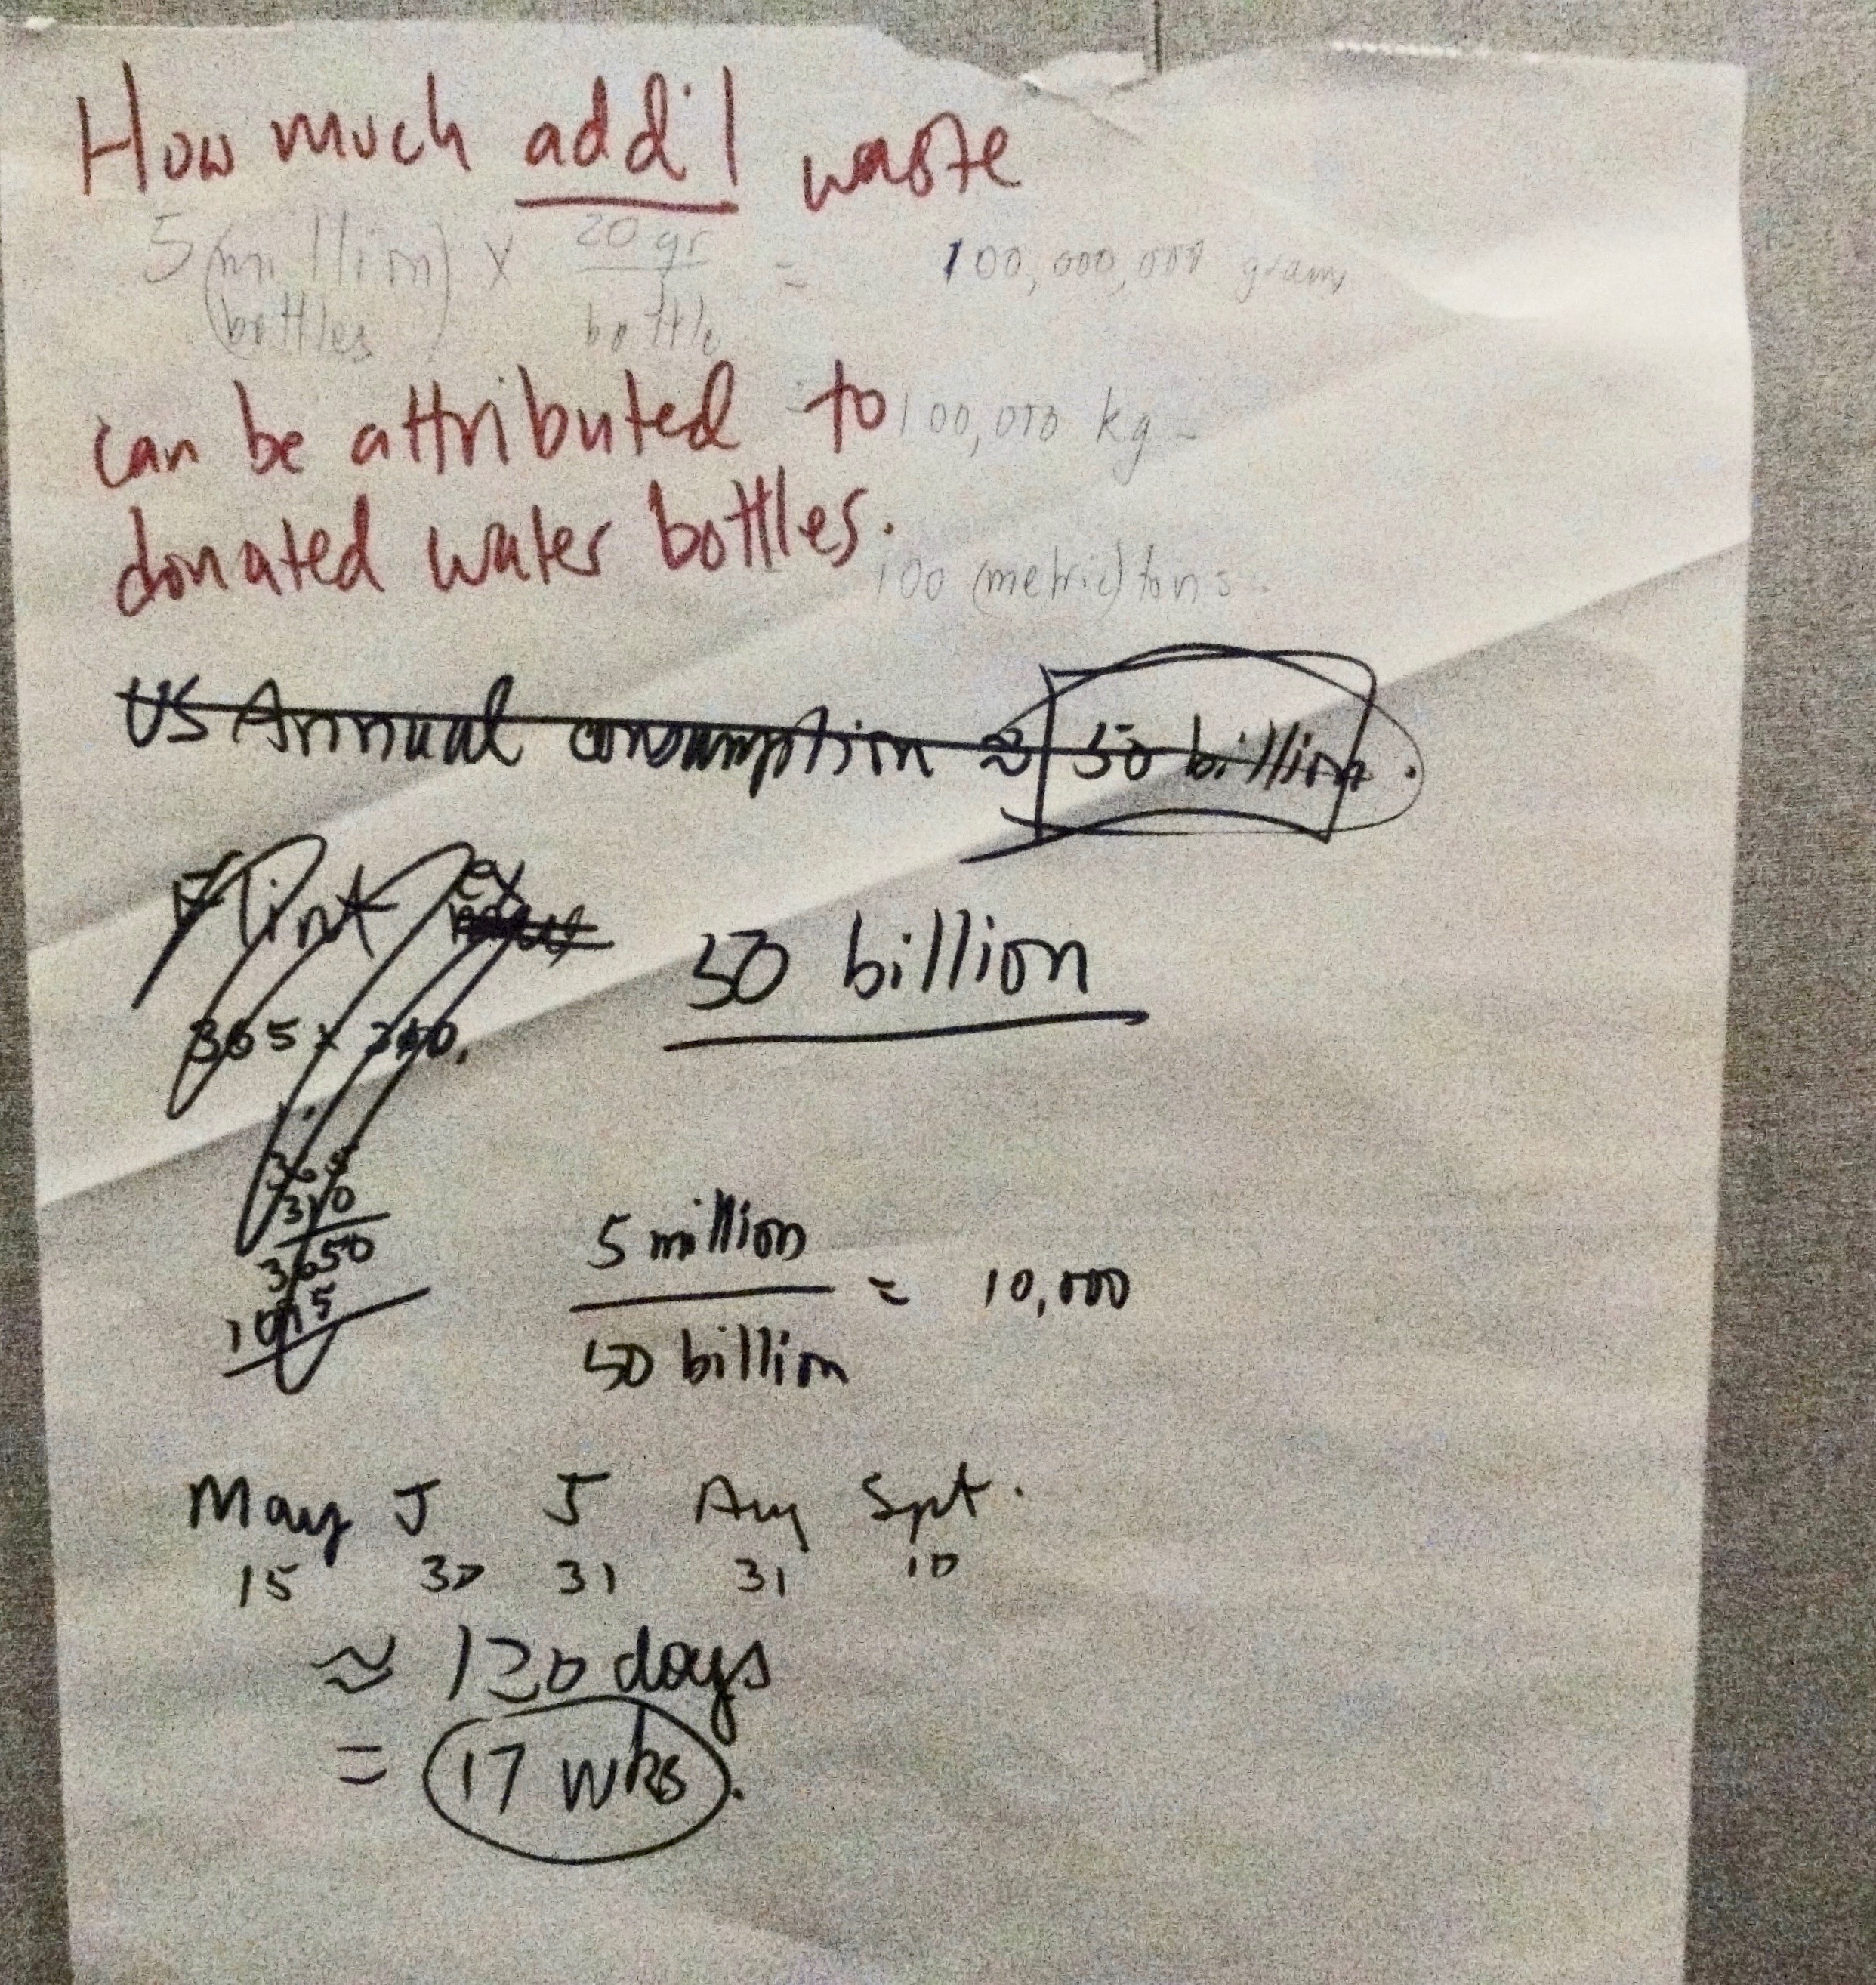 How much add'l waste
5 (million bottles) x 20 gr / bottle = 100,000,000 grams
can be attributed to
100,000 kg
donated water bottles.
100 (metric) tons
US Annual consumption ≈ 50 billion.
Flint ex
50 billion
365 x 300.
365
310
3650
1095
5 million / 50 billion = 10,000
May J J Aug Spt.
15 30 31 31 10
≈ 120 days
= 17 wks.